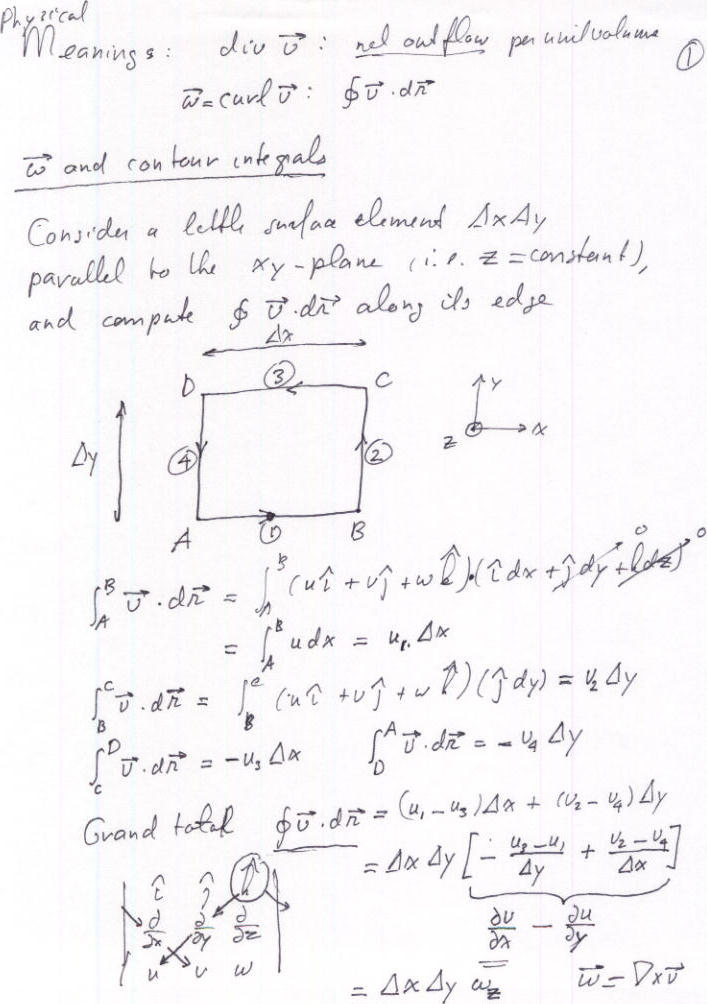 Physical
Meanings: div v⃗ : net outflow per unit volume ①
ω⃗ = curl v⃗ : ∮ v⃗ · dr⃗
ω⃗ and contour integrals
Consider a little surface element Δx Δy
parallel to the xy-plane (i.e. z = constant),
and compute ∮ v⃗ · dr⃗ along its edge
Δx
D ③ C
Δy ④ ②
y
z x
A ① B
∫_A^B v⃗ · dr⃗ = ∫_A^B (u î + v ĵ + w k̂) · (î dx + ĵ dy + k̂ dz) 0 0
= ∫_A^B u dx = u₁ Δx
∫_B^C v⃗ · dr⃗ = ∫_B^C (u î + v ĵ + w k̂) (ĵ dy) = v₂ Δy
∫_C^D v⃗ · dr⃗ = -u₃ Δx ∫_D^A v⃗ · dr⃗ = -v₄ Δy
Grand total ∮ v⃗ · dr⃗ = (u₁ - u₃) Δx + (v₂ - v₄) Δy
= Δx Δy [ - (u₃ - u₁)/Δy + (v₂ - v₄)/Δx ]
| î ĵ k̂ |
| ∂/∂x ∂/∂y ∂/∂z |
| u v w |
∂v/∂x - ∂u/∂y
= Δx Δy ω_z ω⃗ = ∇ x v⃗